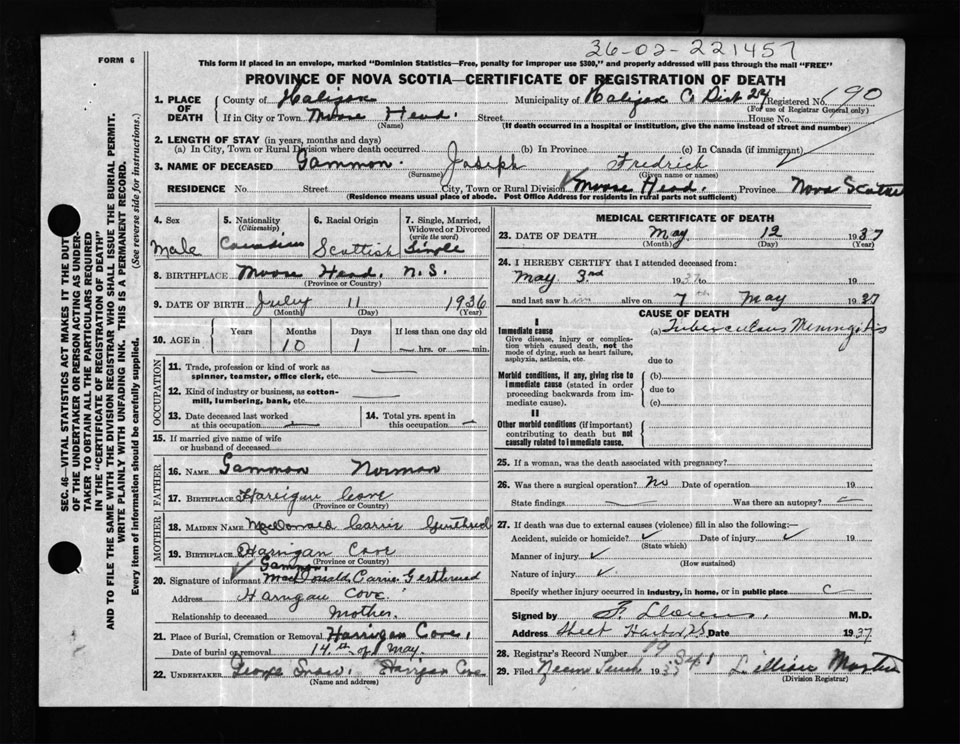 36-02-221457
FORM 6
This form if placed in an envelope, marked "Dominion Statistics—Free, penalty for improper use $300," and properly addressed will pass through the mail "FREE"
PROVINCE OF NOVA SCOTIA—CERTIFICATE OF REGISTRATION OF DEATH
SEC. 46—VITAL STATISTICS ACT MAKES IT THE DUTY
OF THE UNDERTAKER OR PERSON ACTING AS UNDER-
TAKER TO OBTAIN ALL THE PARTICULARS REQUIRED
IN THE "CERTIFICATE OF REGISTRATION OF DEATH"
AND TO FILE THE SAME WITH THE DIVISION REGISTRAR WHO SHALL ISSUE THE BURIAL PERMIT.
WRITE PLAINLY WITH UNFADING INK. THIS IS A PERMANENT RECORD.
Every item of information should be carefully supplied. (See reverse side for instructions.)
1. PLACE OF DEATH County of Halifax Municipality of Halifax Co Dist 24 Registered No. 190
(For use of Registrar General only)
If in City or Town Moose Head. Street House No.
(Name) (If death occurred in a hospital or institution, give the name instead of street and number)
2. LENGTH OF STAY (in years, months and days)
(a) In City, Town or Rural Division where death occurred (b) In Province (c) In Canada (if immigrant)
3. NAME OF DECEASED Gammon. Joseph Fredrick
(Surname) (Given name or names)
RESIDENCE No. Street City, Town or Rural Division Moose Head. Province Nova Scotia
(Residence means usual place of abode. Post Office Address for residents in rural parts not sufficient)
4. Sex Male
5. Nationality (Citizenship) Canadian
6. Racial Origin Scottish
7. Single, Married, Widowed or Divorced (write the word) Single
8. BIRTHPLACE Moose Head. N.S.
(Province or Country)
9. DATE OF BIRTH July 11 1936
(Month) (Day) (Year)
10. AGE in Years Months 10 Days 1 If less than one day old
hrs. or min.
OCCUPATION
11. Trade, profession or kind of work as
spinner, teamster, office clerk, etc. —
12. Kind of industry or business, as cotton-
mill, lumbering, bank, etc. —
13. Date deceased last worked
at this occupation —
14. Total yrs. spent in
this occupation —
15. If married give name of wife
or husband of deceased
FATHER
16. NAME Gammon Norman
17. BIRTHPLACE Harrigan Cove
(Province or Country)
MOTHER
18. MAIDEN NAME MacDonald Carrie
19. BIRTHPLACE Harrigan Cove
(Province or Country)
Gammon
20. Signature of informant MacDonald Carrie
Address Harrigan Cove
Relationship to deceased Mother.
21. Place of Burial, Cremation or Removal Harrigan Cove,
Date of burial or removal 14th of May.
22. UNDERTAKER George Snow, Harrigan Cove
(Name and address)
MEDICAL CERTIFICATE OF DEATH
23. DATE OF DEATH May 12 1937
(Month) (Day) (Year)
24. I HEREBY CERTIFY that I attended deceased from:
May 3rd 1937 to 19
and last saw him alive on 7th May 1937
CAUSE OF DEATH
I
Immediate cause (a) Tuberculous Meningitis
Give disease, injury or complica-
tion which caused death, not the
mode of dying, such as heart failure,
asphyxia, asthenia, etc.
due to
Morbid conditions, if any, giving rise to
immediate cause (stated in order
proceeding backwards from im-
mediate cause).
(b)
due to
(c)
II
Other morbid conditions (if important)
contributing to death but not
causally related to immediate cause.
25. If a woman, was the death associated with pregnancy?
26. Was there a surgical operation? No Date of operation 19
State findings Was there an autopsy?
27. If death was due to external causes (violence) fill in also the following:—
Accident, suicide or homicide? Date of injury 19
(State which)
Manner of injury
(How sustained)
Nature of injury
Specify whether injury occurred in industry, in home, or in public place
Signed by M.D.
Address Sheet Harbor N.S. Date 1937
28. Registrar's Record Number
29. Filed Lillian
(Division Registrar)